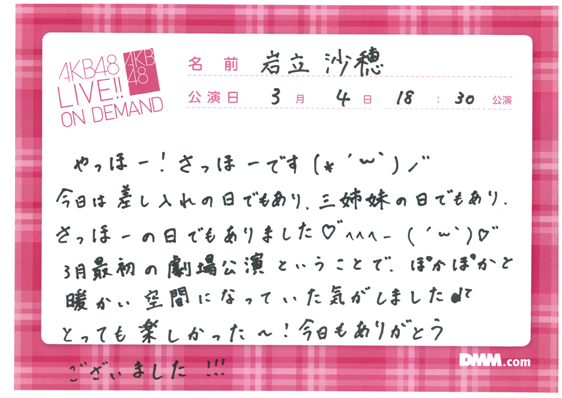 AKB48
LIVE!!
ON DEMAND
AKB
48
名 前 岩立 沙穂
公演日 3 月 4 日 18 : 30 公演
やっほー！さっほーです(*´ω`)ノ
今日は差し入れの日でもあり、三姉妹の日でもあり、
さっほーの日でもありました♡へへへー(´ω`)♡
3月最初の劇場公演ということで、ぽかぽかと
暖かい空間になっていた気がしました♪
とっても楽しかった〜！今日もありがとう
ございました!!!
DMM.com